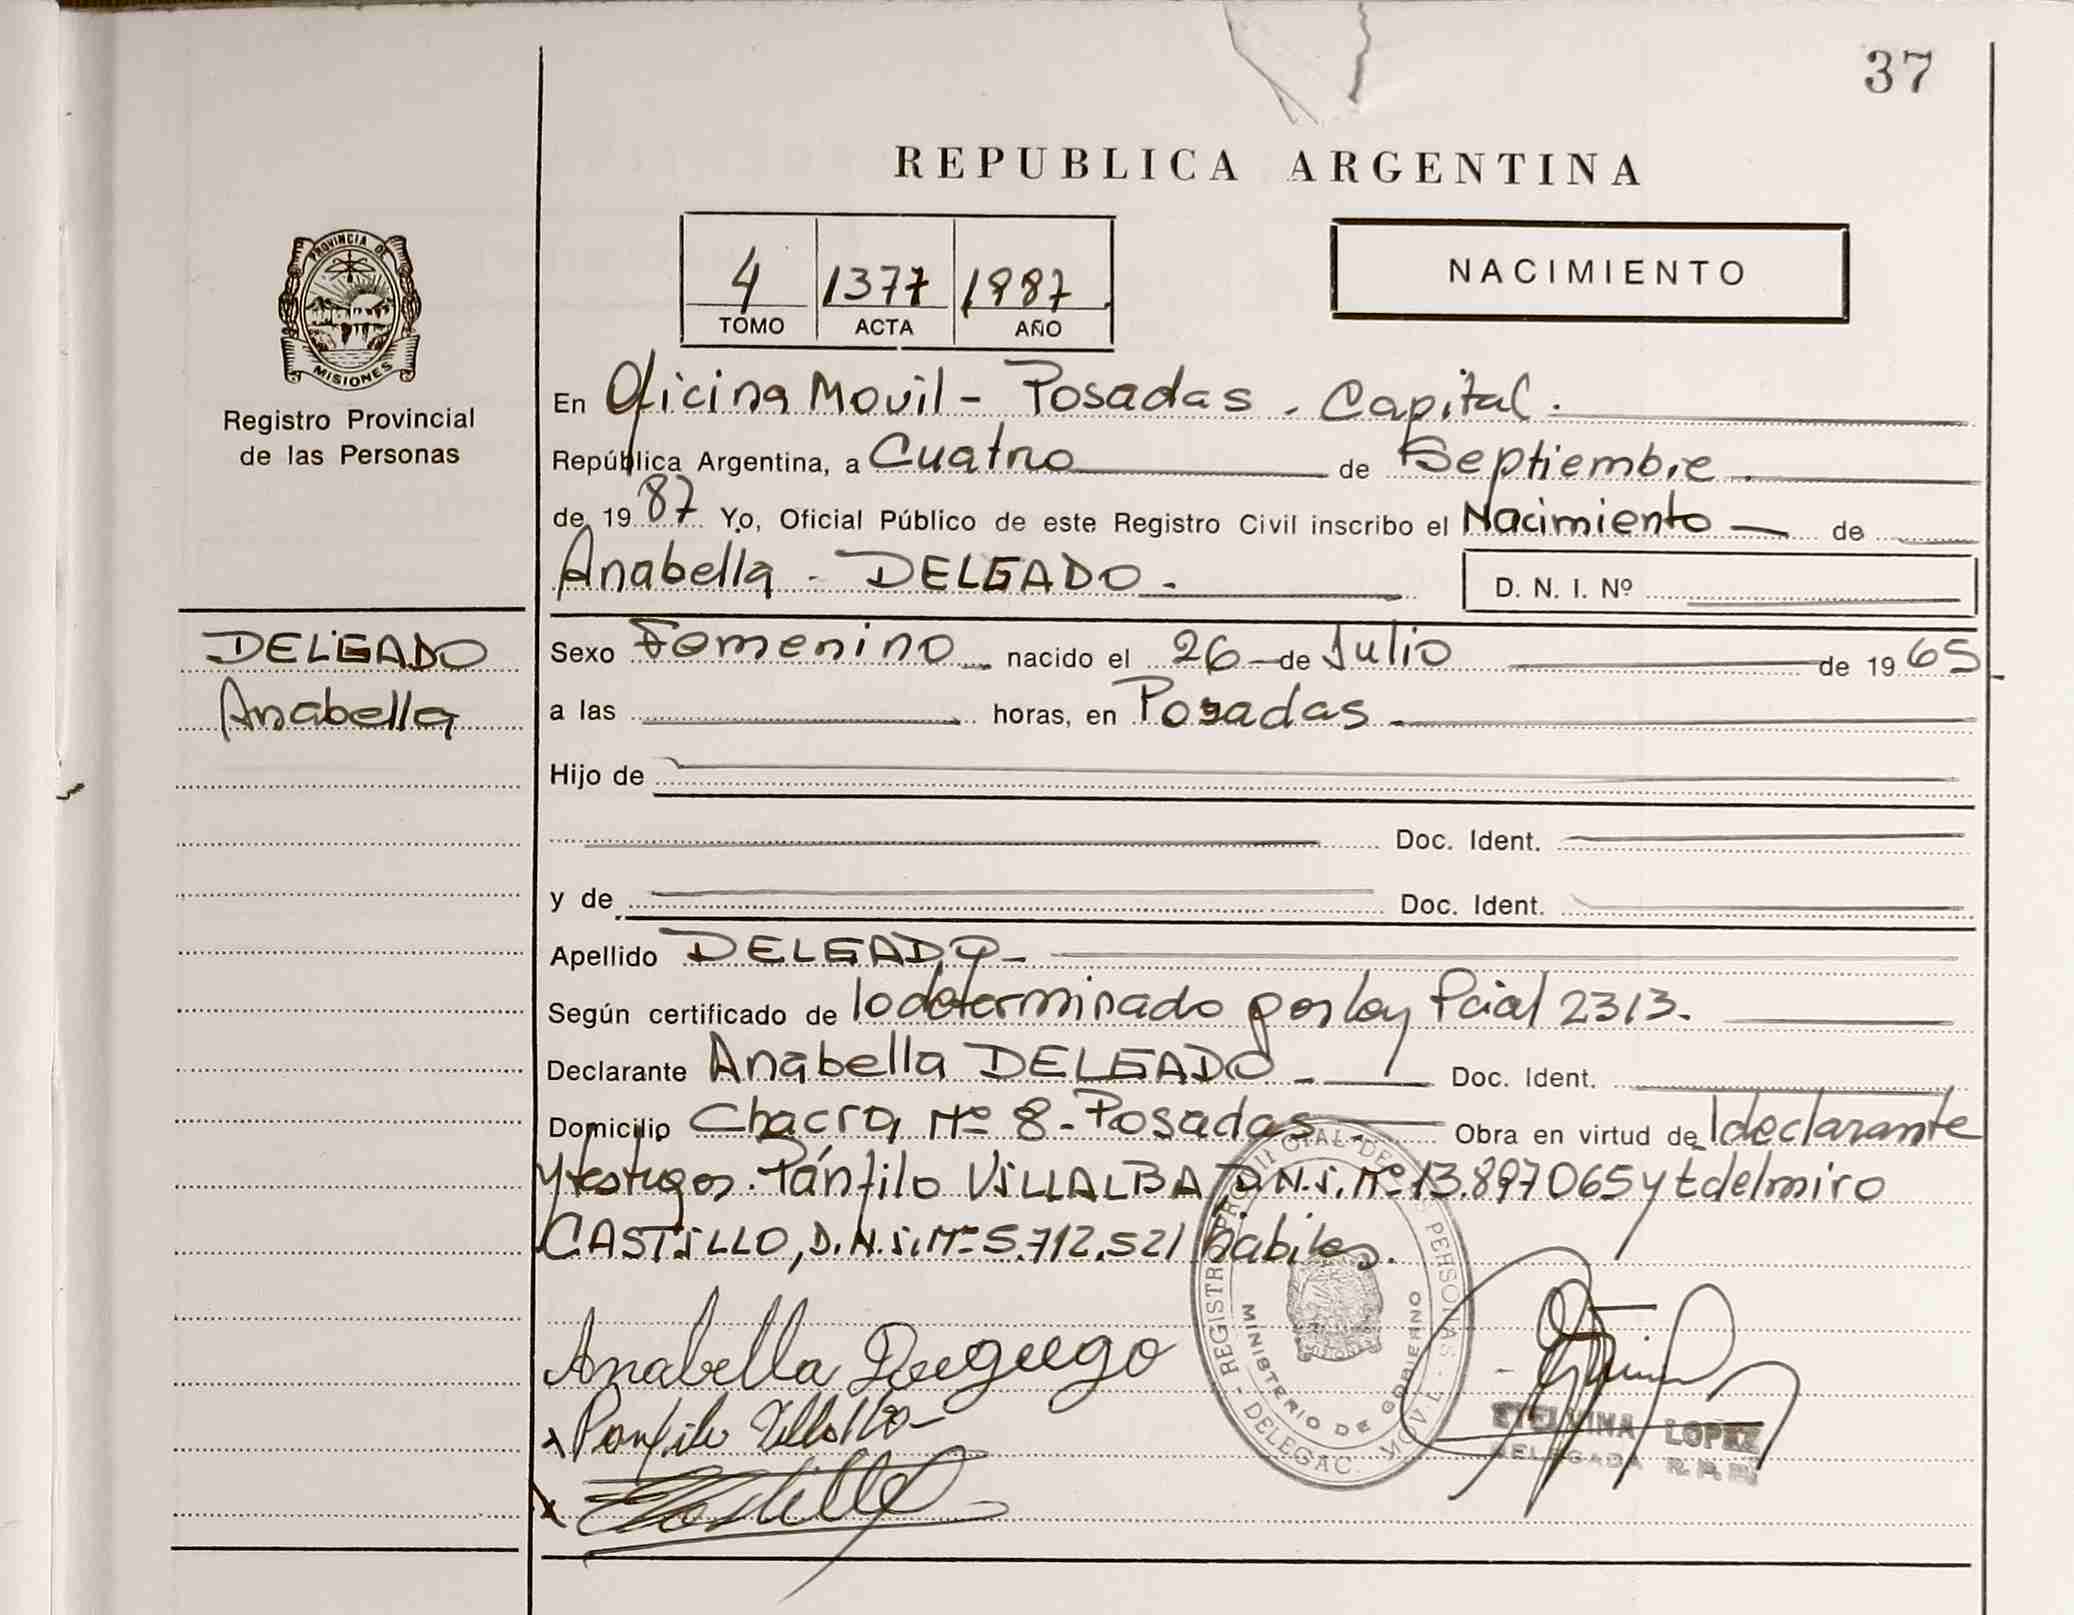 37
REPUBLICA ARGENTINA
4 1377 1987
TOMO ACTA AÑO
NACIMIENTO
PROVINCIA DE
MISIONES
Registro Provincial
de las Personas
En Oficina Movil - Posadas - Capital.
República Argentina, a Cuatro de Septiembre
de 1987 Yo, Oficial Público de este Registro Civil inscribo el Nacimiento de
Anabella - DELGADO -
D. N. I. Nº
DELGADO
Anabella
Sexo Femenino nacido el 26 de Julio de 1965
a las horas, en Posadas
Hijo de
Doc. Ident.
y de Doc. Ident.
Apellido DELGADO -
Según certificado de lo determinado por ley Pcial 2313.
Declarante Anabella DELGADO - Doc. Ident.
Domicilio Chacra Nº 8 - Posadas - Obra en virtud de declarante
y testigos. Pánfilo VILLALBA, D.N.i. Nº 13.897065 y Edelmiro
CASTiLLO, D.N.i. Nº 5.712.521 hábiles.
REGISTRO PROVINCIAL DE LAS PERSONAS
MINISTERIO DE GOBIERNO
DELEGAC. MOVIL
Anabella
Panfilo Villalba
Castillo
ETELVINA LOPEZ
DELEGADA R. P. P.